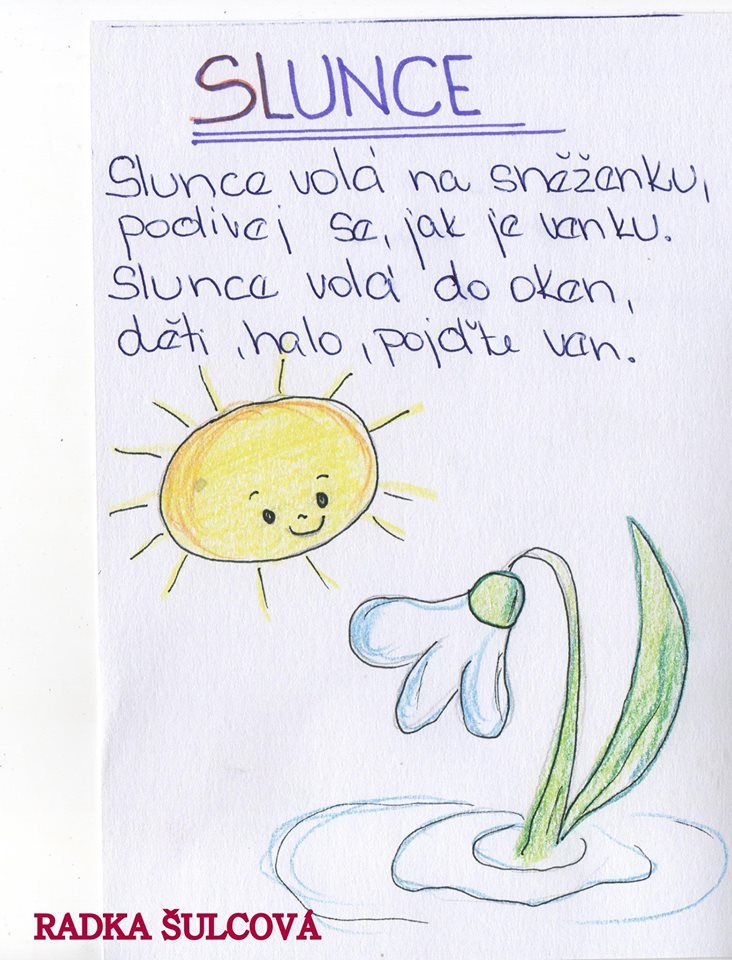 SLUNCE
Slunce volá na sněženku,
podivej se, jak je venku.
Slunce volá do oken,
děti, halo, pojďte ven.
RADKA ŠULCOVÁ